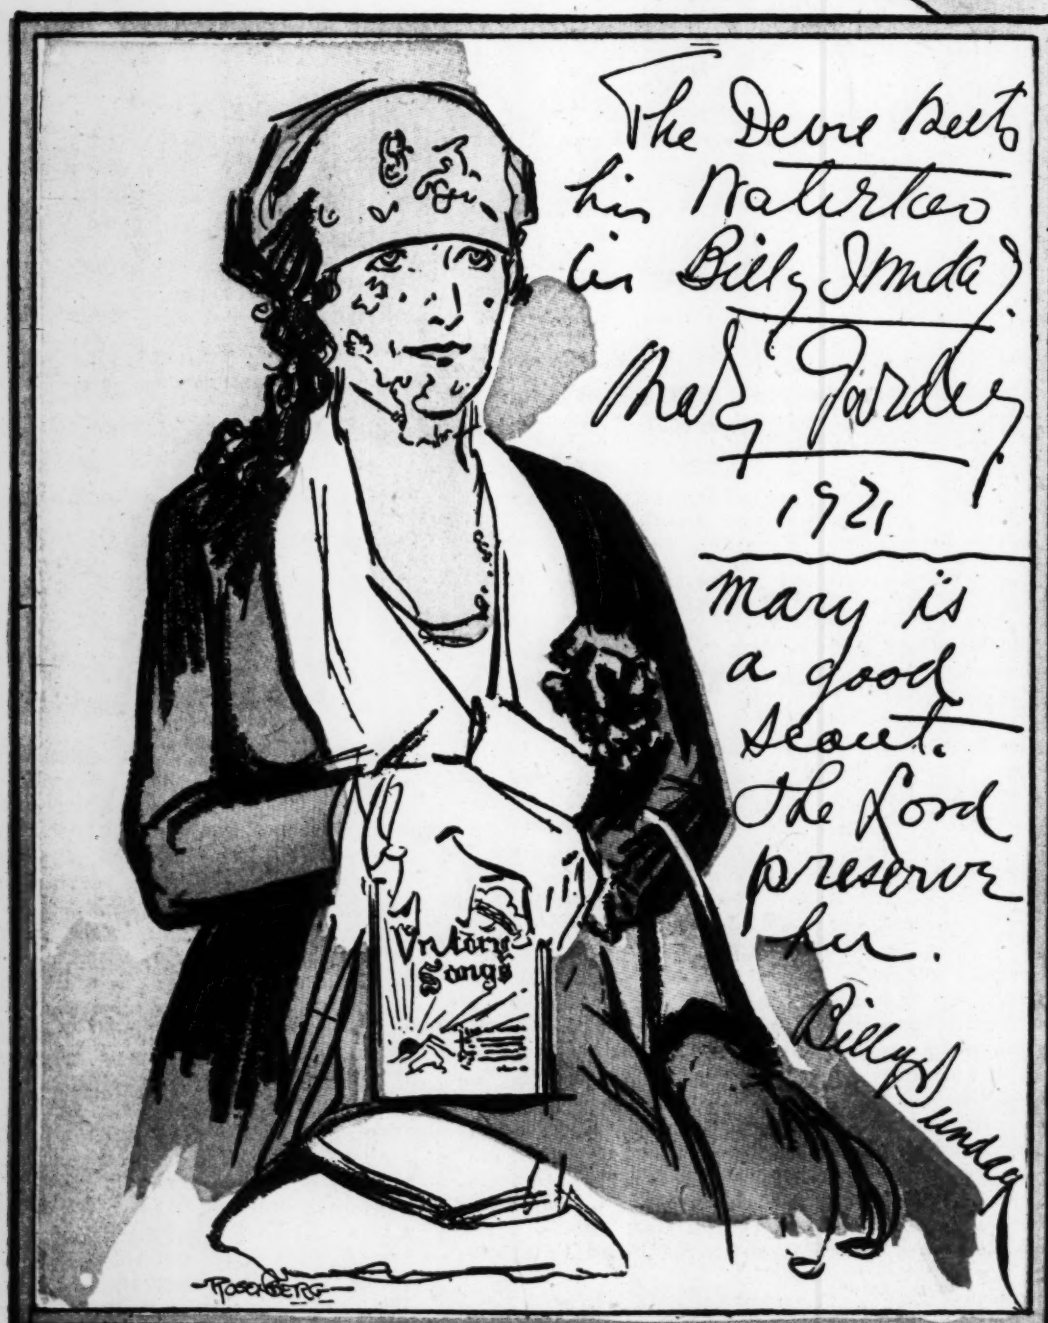 The Devil meets
his Waterloo
in Billy Sunday
Mary Garden
1921
mary is
a good
scout.
The Lord
preserve
her.
Billy Sunday
Victory
Songs
ROSENBERG